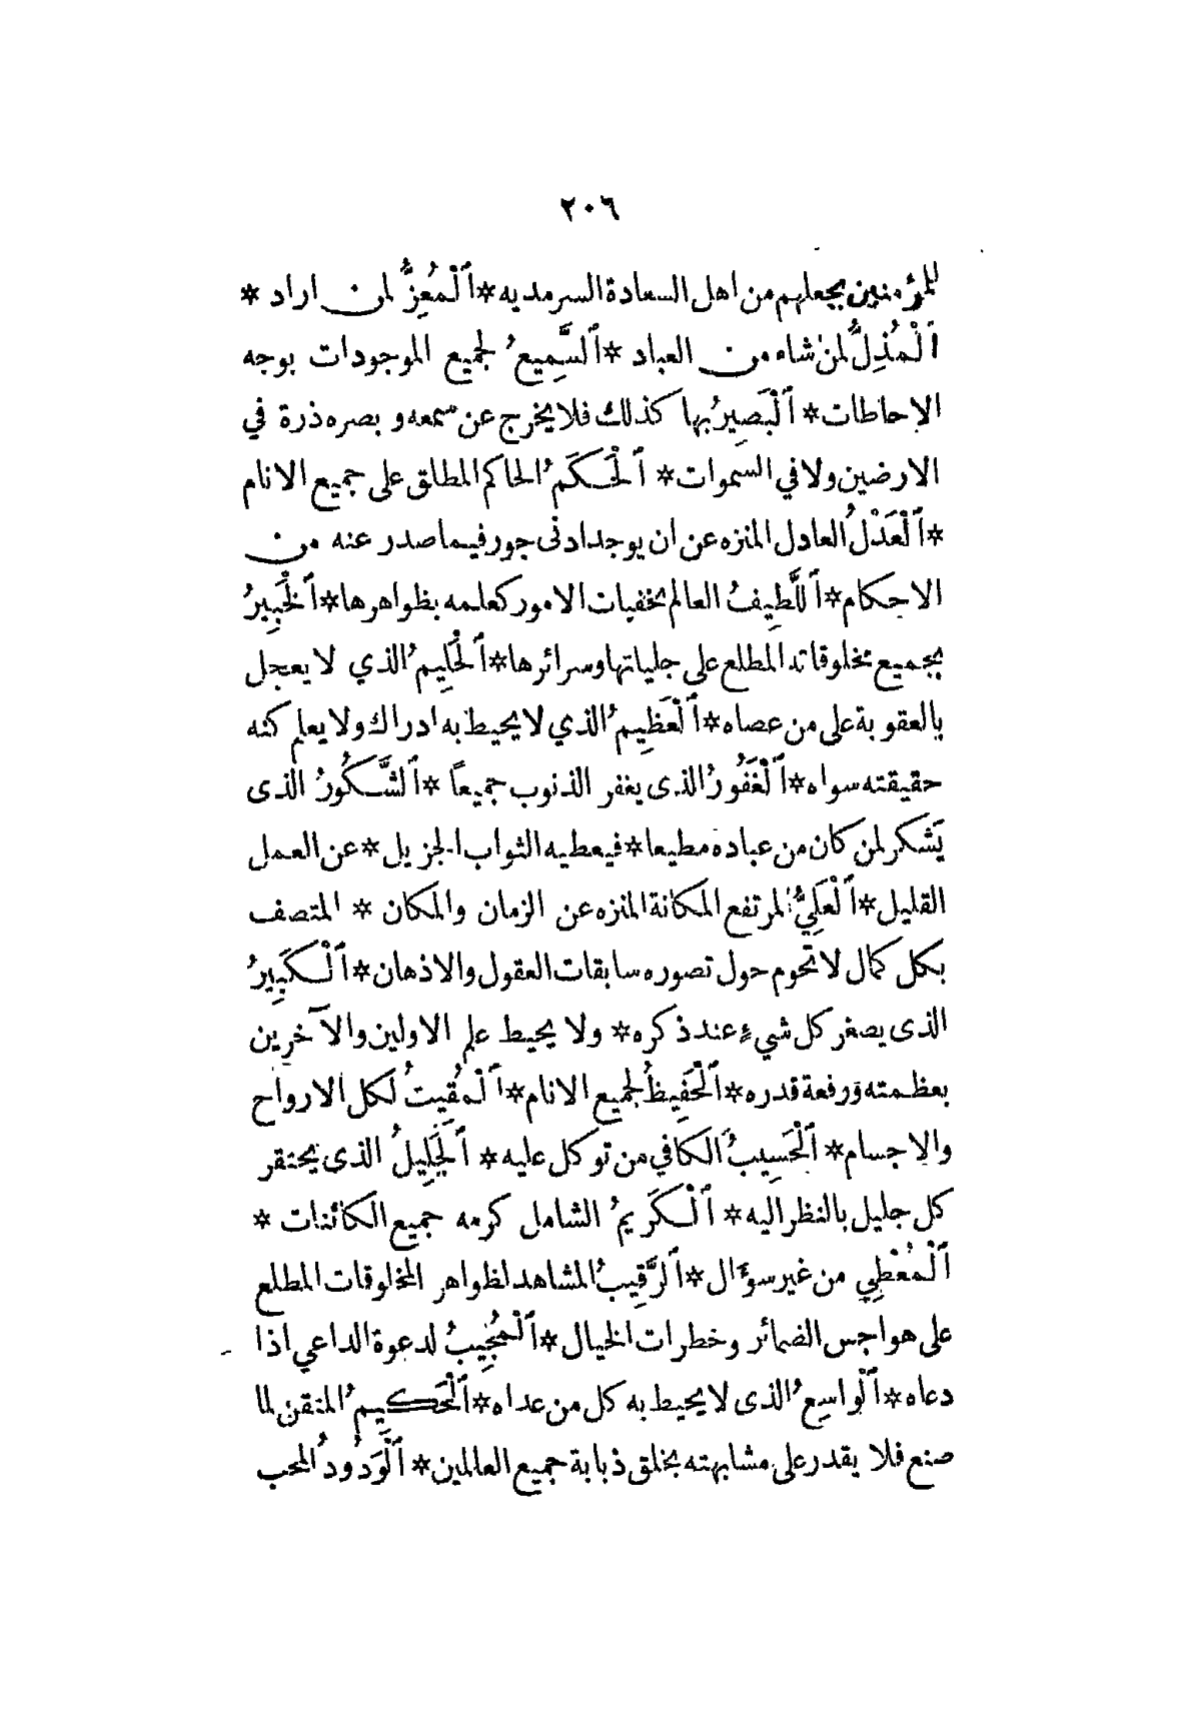 ٢٠٦
للمؤمنين بجعلهم من اهل السعادة السرمديه * اَلْمُعِزُّ لمن اراد *
اَلْمُذِلُّ لمن شاء من العباد * اَلسَّمِيعُ لجميع الموجودات بوجه
الاحاطات * اَلْبَصِيرُ بها كذلك فلا يخرج عن سمعه و بصره ذرة في
الارضين ولا في السموات * اَلْحَكَمُ الحاكم المطلق على جميع الانام
* اَلْعَدْلُ العادل المنزه عن ان يوجد ادنى جور فيما صدر عنه من
الاحكام * اَللَّطِيفُ العالم بخفيات الامور كعلمه بظواهرها * اَلْخَبِيرُ
بجميع مخلوقاته المطلع على جلياتها وسرائرها * اَلْحَلِيمُ الذي لا يعجل
بالعقوبة على من عصاه * اَلْعَظِيمُ الذي لا يحيط به ادراك ولا يعلم كنه
حقيقته سواه * اَلْغَفُورُ الذى يغفر الذنوب جميعاً * اَلشَّكُورُ الذى
يَشكر لمن كان من عباده مطيعا * فيعطيه الثواب الجزيل * عن العمل
القليل * اَلْعَلِيُّ المرتفع المكانة المنزه عن الزمان والمكان * المتصف
بكل كمال لا تحوم حول تصوره سابقات العقول والاذهان * اَلْكَبِيرُ
الذى يصغر كل شيءٍ عند ذكره * ولا يحيط علم الاولين والآخرين
بعظمته ورفعة قدره * اَلْحَفِيظُ لجميع الانام * اَلْمُقِيتُ لكل الارواح
والاجسام * اَلْحَسِيبُ الكافي من توكل عليه * اَلْجَلِيلُ الذى يحتقر
كل جليل بالنظر اليه * اَلْكَرِيمُ الشامل كرمه جميع الكائنات *
اَلْمُعْطِي من غير سؤال * اَلرَّقِيبُ المشاهد لظواهر المخلوقات المطلع
على هواجس الضمائر وخطرات الخيال * اَلْمُجِيبُ لدعوة الداعي اذا
دعاه * اَلْواسِعُ الذى لا يحيط به كل من عداه * اَلْحَكِيمُ المتقن لما
صنع فلا يقدر على مشابهته بخلق ذبابة جميع العالمين * اَلْوَدُودُ المحب